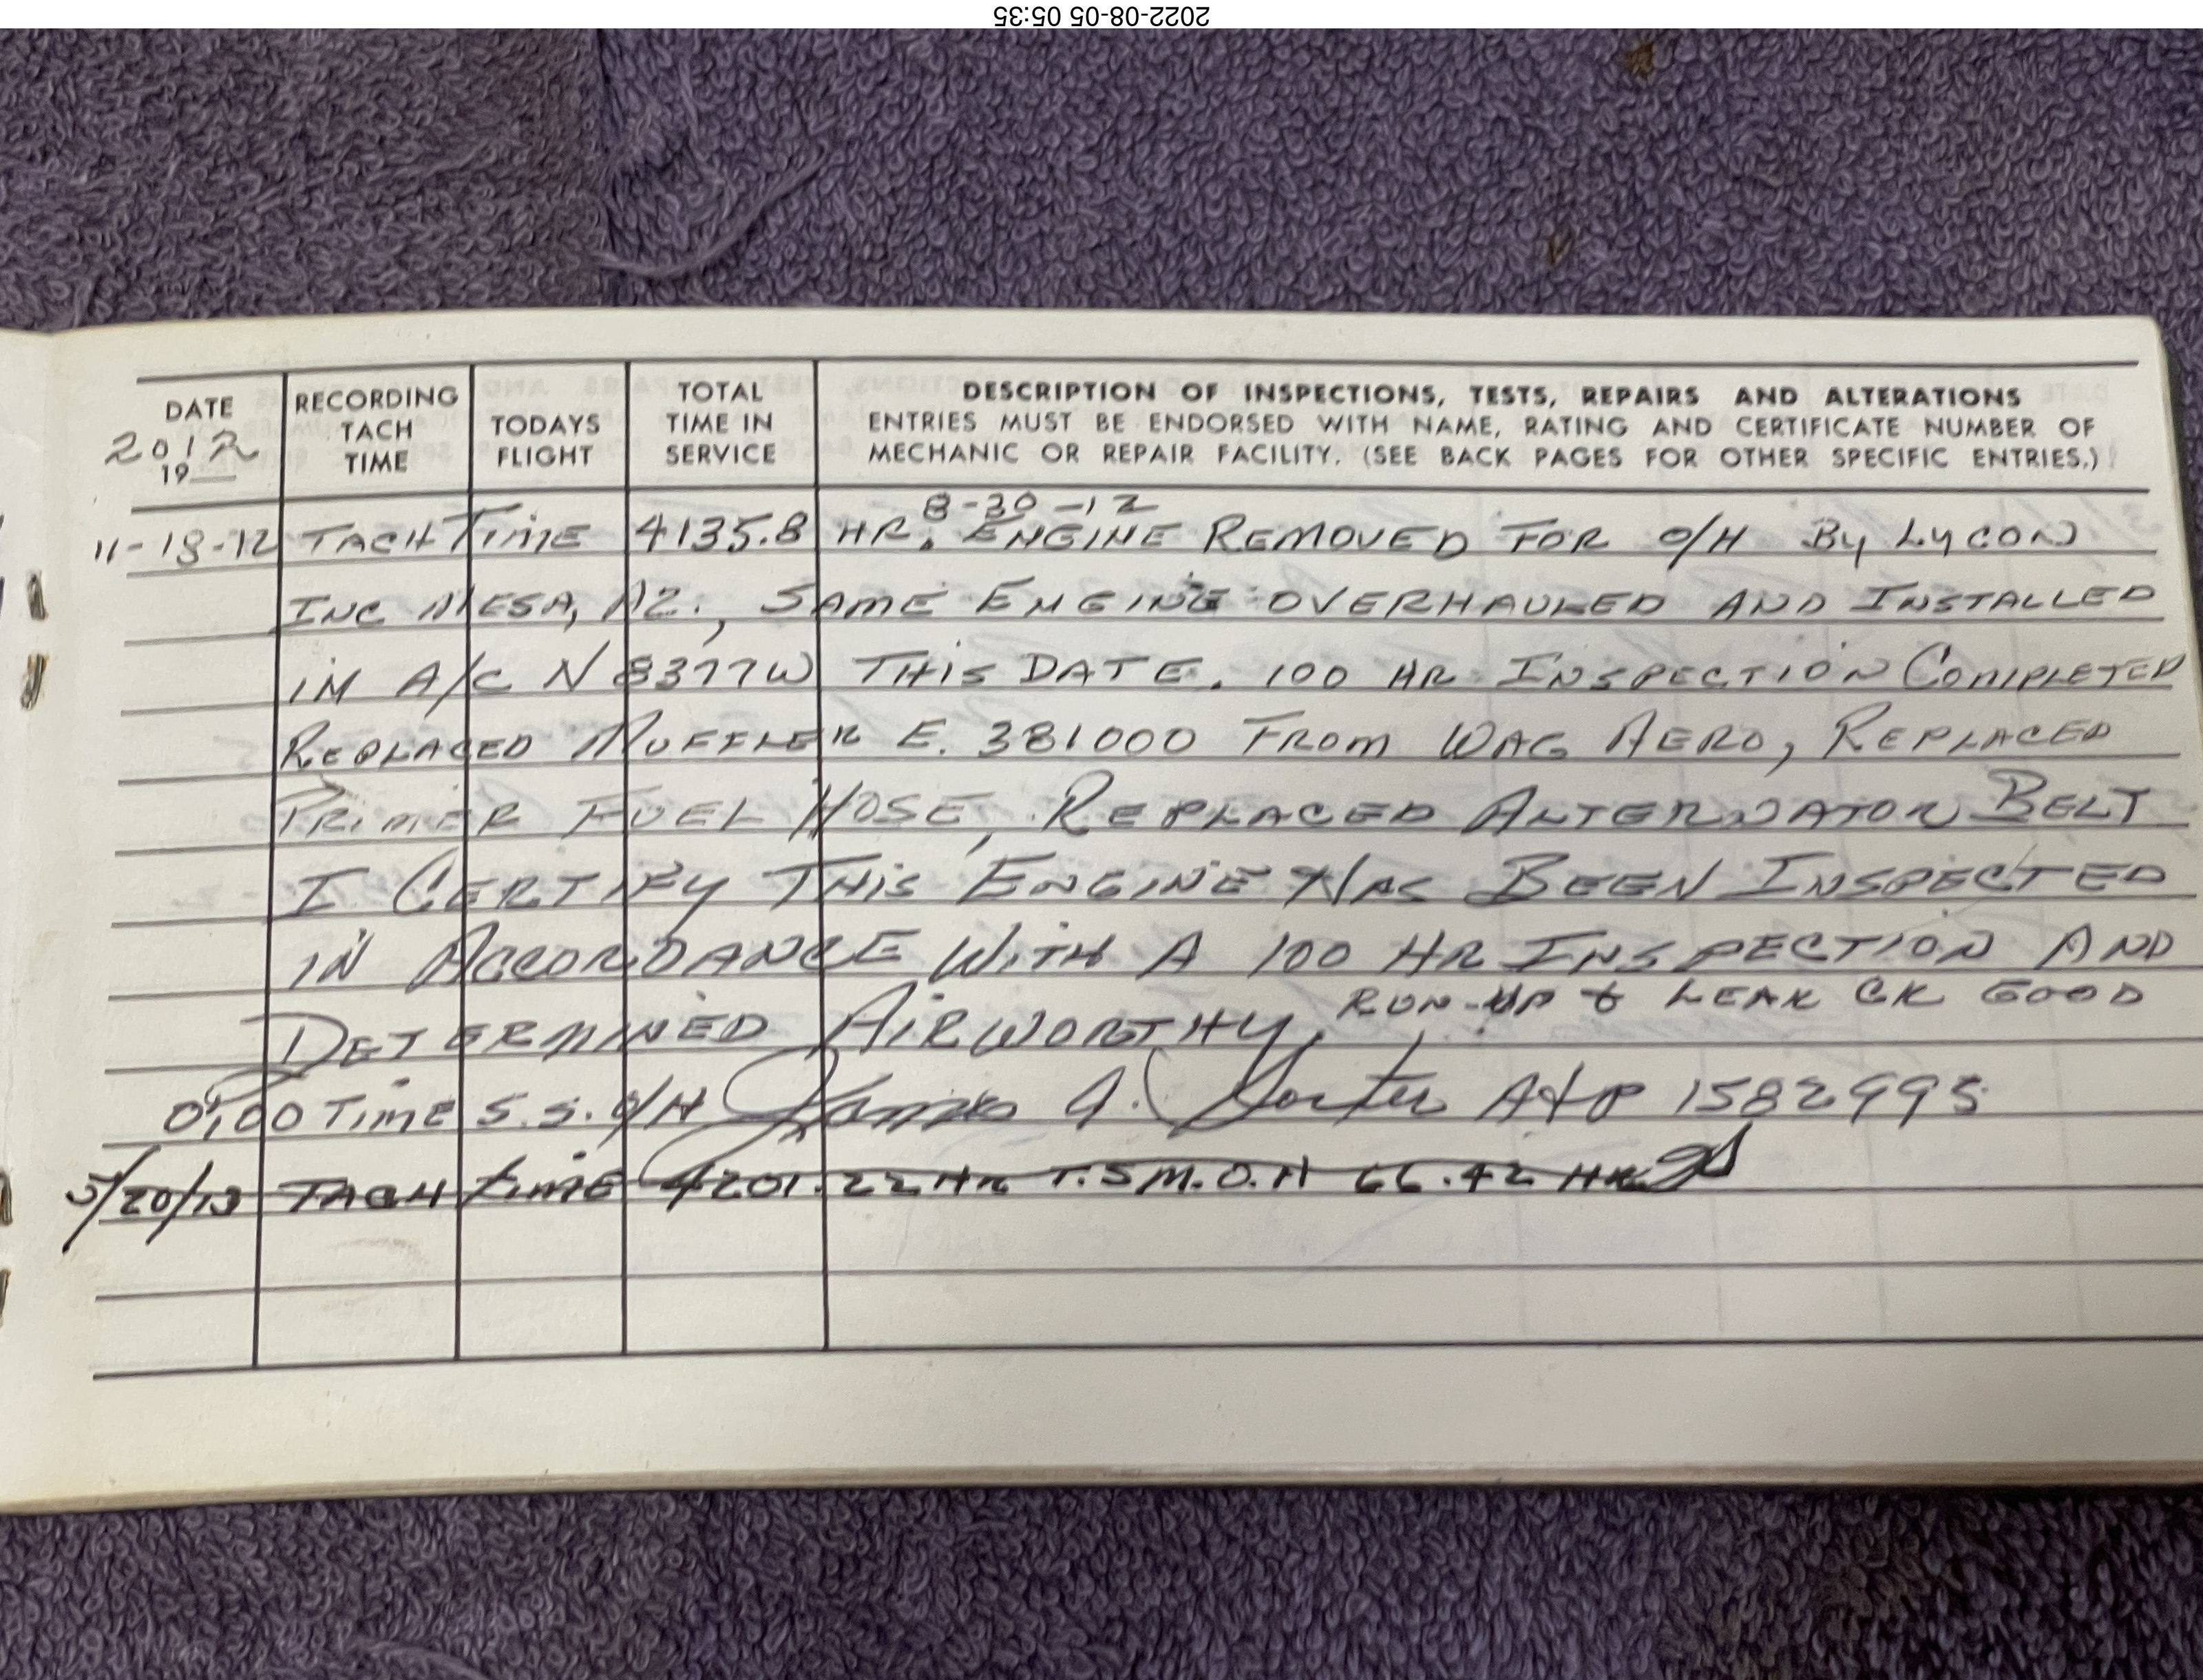 2022-08-05 05:35
DATE
2012
19
RECORDING
TACH
TIME
TODAYS
FLIGHT
TOTAL
TIME IN
SERVICE
DESCRIPTION OF INSPECTIONS, TESTS, REPAIRS AND ALTERATIONS
ENTRIES MUST BE ENDORSED WITH NAME, RATING AND CERTIFICATE NUMBER OF
MECHANIC OR REPAIR FACILITY. (SEE BACK PAGES FOR OTHER SPECIFIC ENTRIES.)
8-30-12
11-18-12 TACH TIME 4135.8 HR. ENGINE REMOVED FOR O/H By LYCON
INC MESA, AZ., SAME ENGINE OVERHAULED AND INSTALLED
IN A/C N8377W THIS DATE. 100 HR INSPECTION COMPLETED
REPLACED MUFFLER E. 381000 FROM WAG AERO, REPLACED
PRIMER FUEL HOSE, REPLACED ALTERNATOR BELT
I CERTIFY THIS ENGINE HAS BEEN INSPECTED
IN ACCORDANCE WITH A 100 HR INSPECTION AND
DETERMINED AIRWORTHY, RUN-UP & LEAK CK GOOD
0.00 TIME S.S. O/H James A. A&P 1582995
5/20/13 TACH TIME 4201.22 HR T.S.M.O.H 66.42 HR